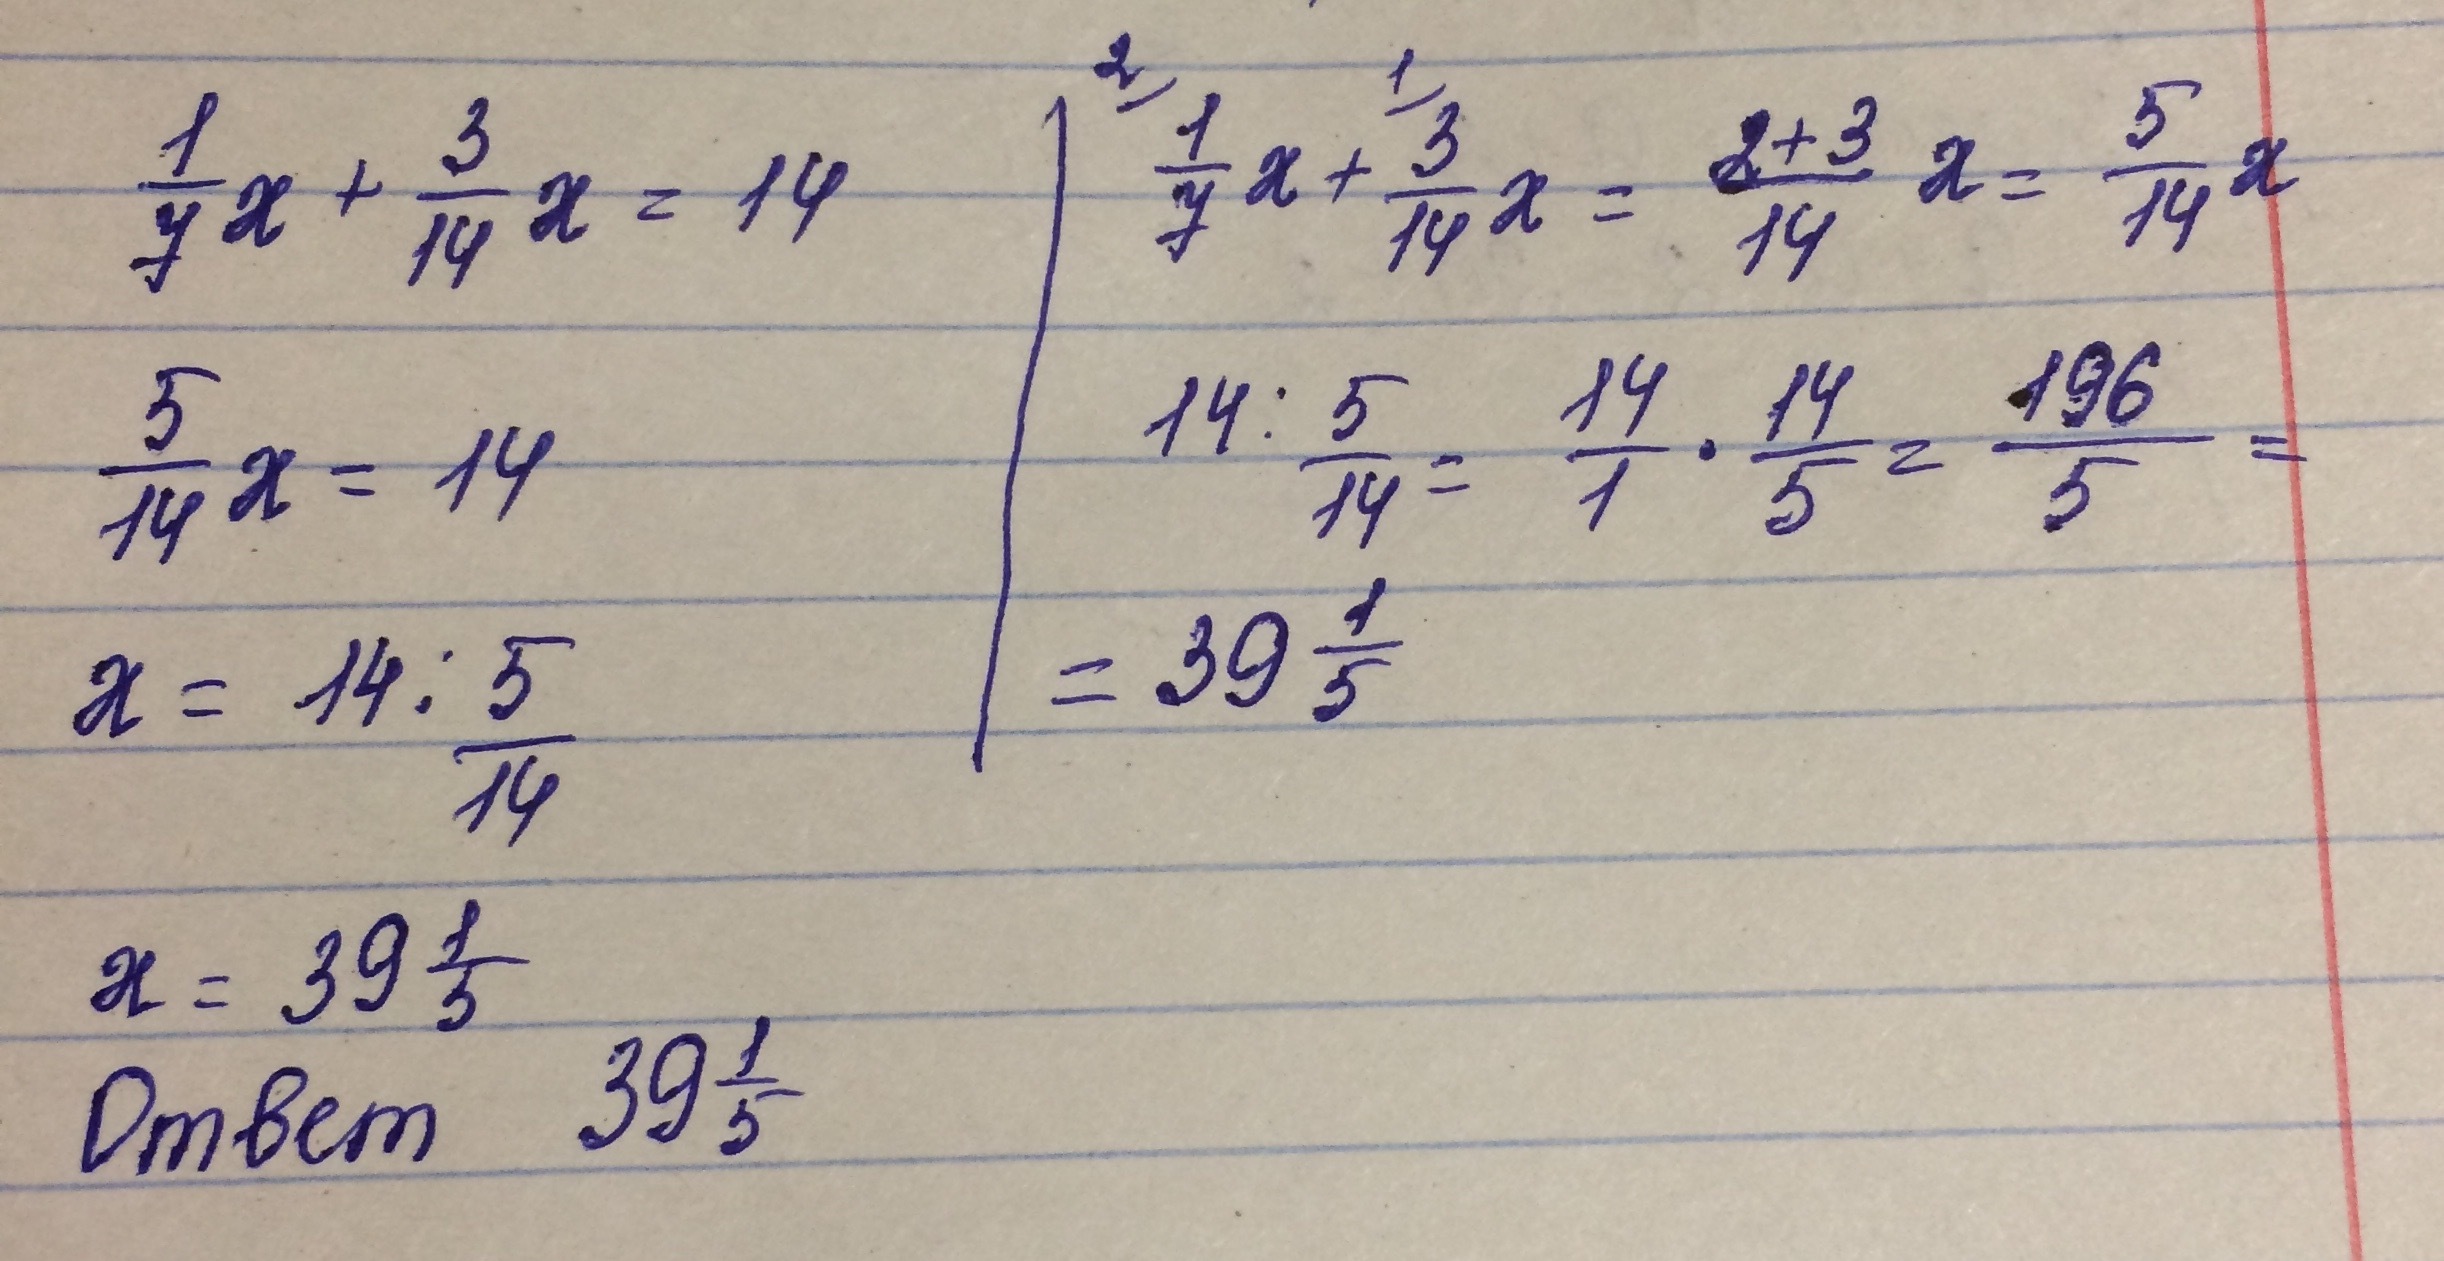 1/7 x + 3/14 x = 14
5/14 x = 14
x = 14 : 5/14
x = 39 1/5
Ответ 39 1/5
2/ 1/
1/7 x + 3/14 x = 2+3/14 x = 5/14 x
14 : 5/14 = 14/1 · 14/5 = 196/5 =
= 39 1/5